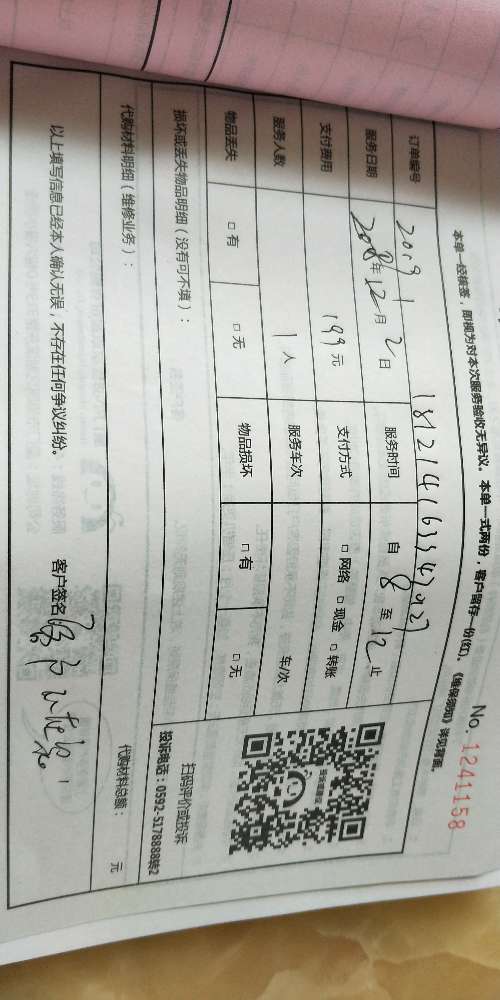 No. 1241158
本单一经核签，即视为对本次服务验收无异议。本单一式两份，客户留存一份(红)。《维保须知》详见背面。
订单编号
服务日期 2018年12月2日 服务时间 自 8 至 12 止
支付费用 199元 支付方式 □网络 □现金 □转账
服务人数 1人 服务车次 车/次
物品丢失 □有 □无 物品损坏 □有 □无
损坏或丢失物品明细（没有可不填）：
扫码评价或投诉
投诉电话：0592-5178888转2
代购材料明细（维修业务）：
代购材料总额： 元
以上填写信息已经本人确认无误，不存在任何争议纠纷。 客户签名